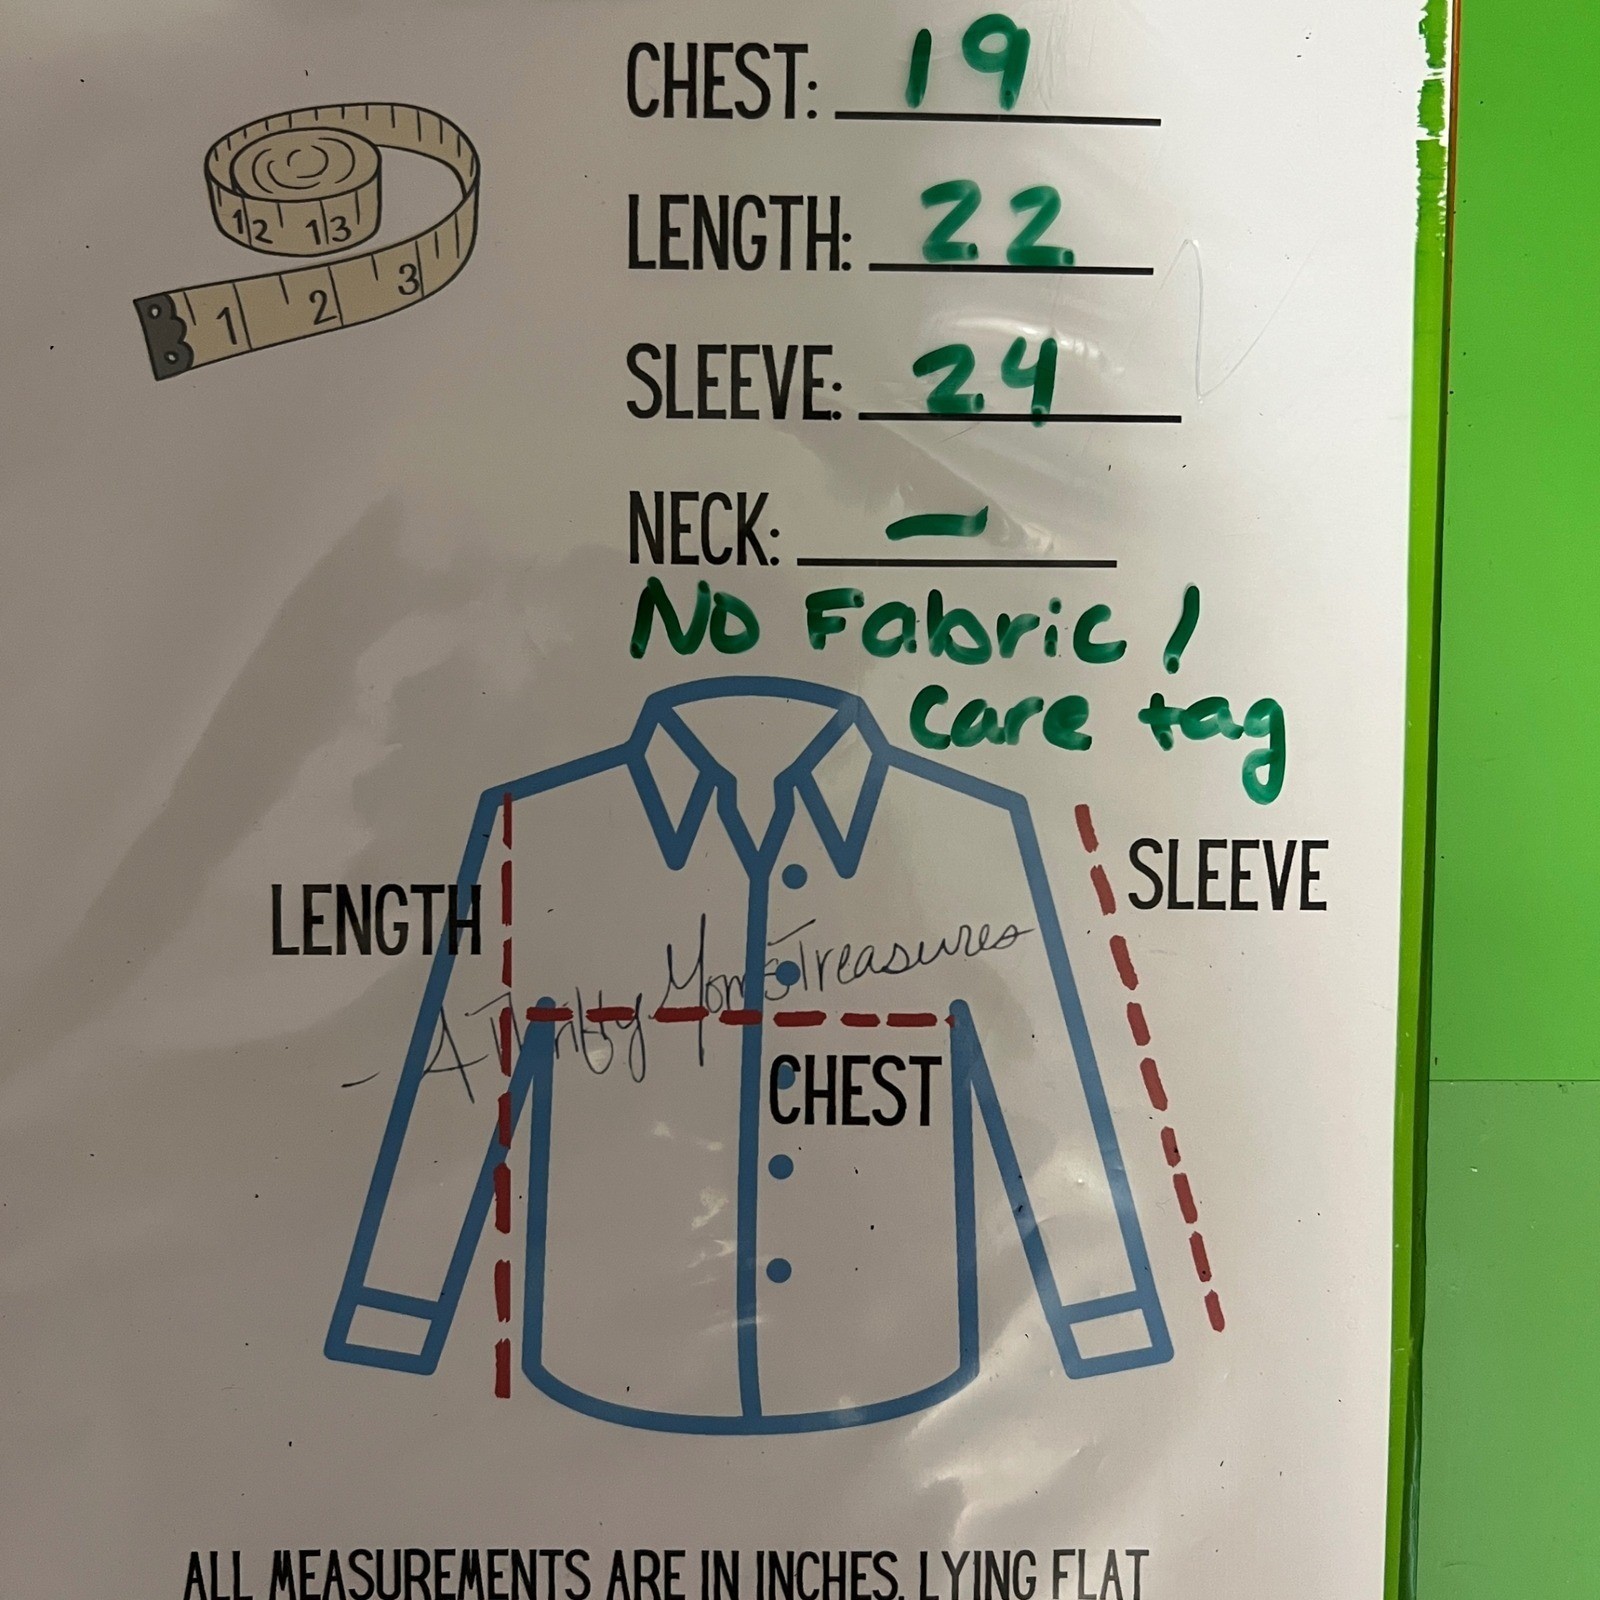 CHEST: 19
LENGTH: 22
SLEEVE: 24
NECK: —
No Fabric /
care tag
12 13
1 2 3
SLEEVE
LENGTH
- A Thrifty Mom's Treasures
CHEST
ALL MEASUREMENTS ARE IN INCHES, LYING FLAT